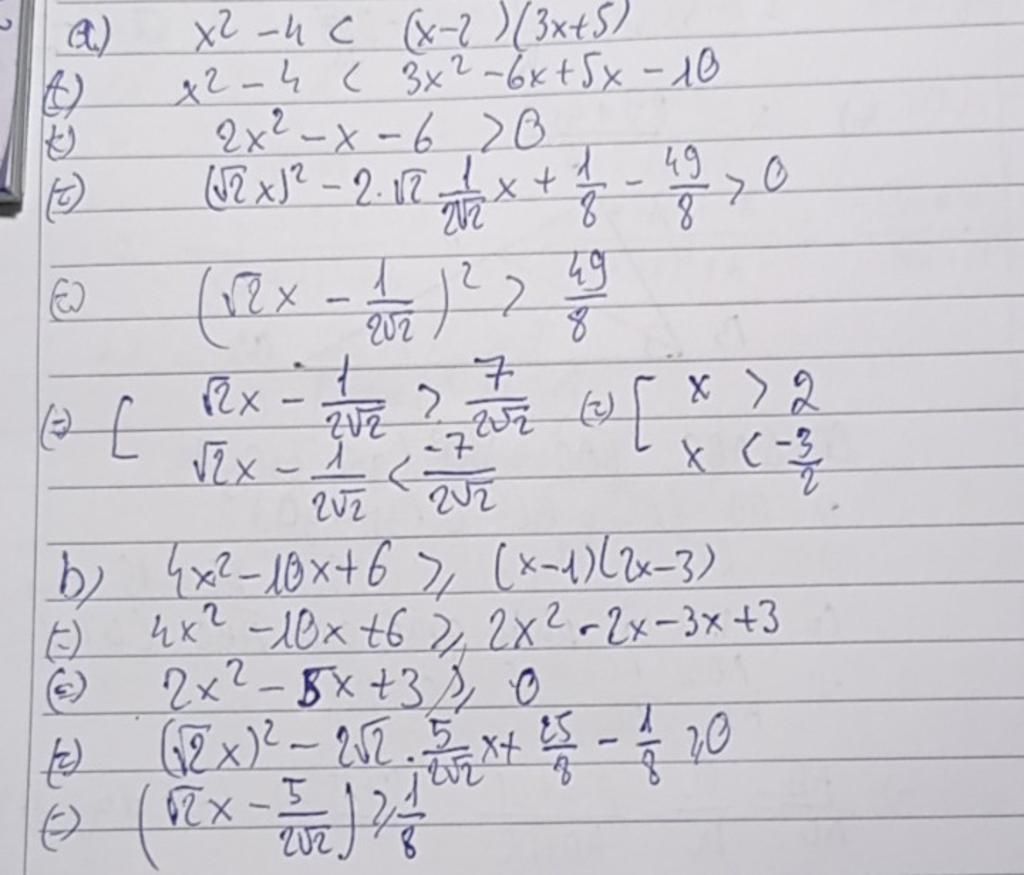 a) x² - 4 < (x-2)(3x+5)
(=) x² - 4 < 3x² - 6x + 5x - 10
(=) 2x² - x - 6 > 0
(=) (√2x)² - 2.√2 1/2√2 x + 1/8 - 49/8 > 0
(=) (√2x - 1/2√2)² > 49/8
(=) [ √2x - 1/2√2 > 7/2√2 (=) [ x > 2
√2x - 1/2√2 < -7/2√2 x < -3/2
b) 4x² - 10x + 6 ≥ (x-1)(2x-3)
(=) 4x² - 10x + 6 ≥ 2x² - 2x - 3x + 3
(=) 2x² - 5x + 3 ≥ 0
(=) (√2x)² - 2√2 . 5/2√2 x + 25/8 - 1/8 ≥ 0
(=) (√2x - 5/2√2) ≥ 1/8